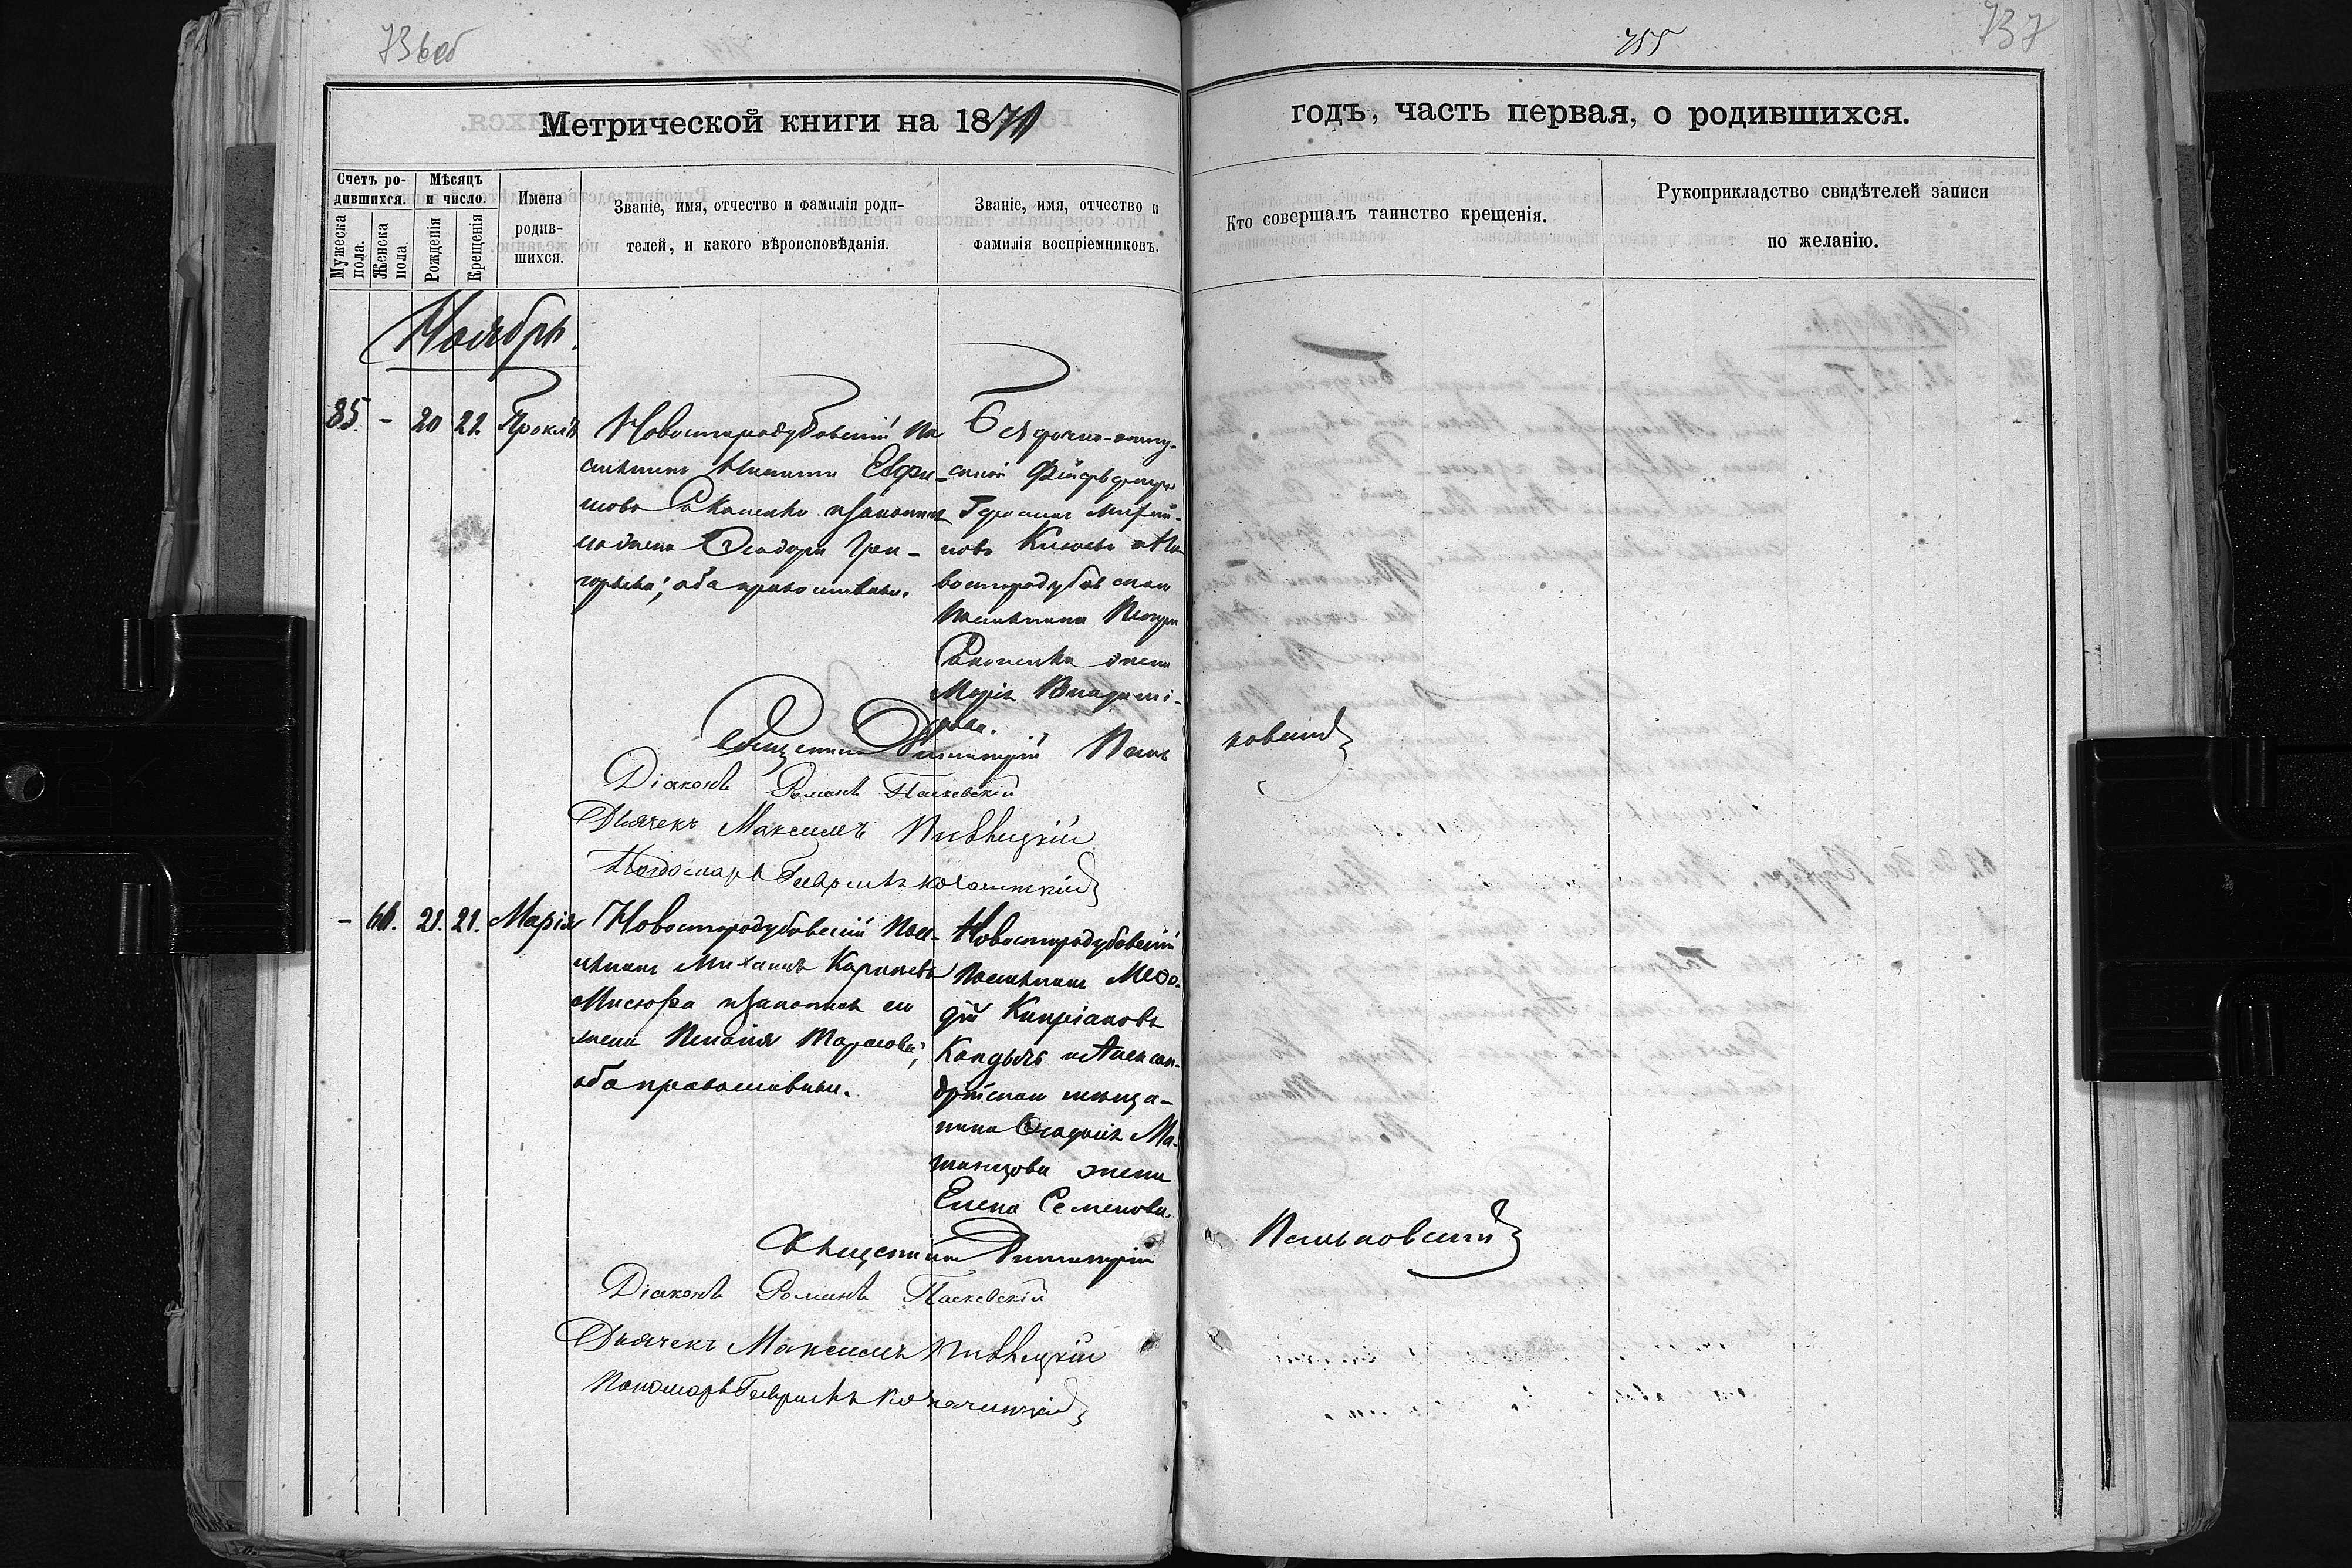 736об
755
737
Метрической книги на 1871
годъ, часть первая, о родившихся.
Счетъ ро-
дившихся.
Мужеска пола.
Женска пола.
Мѣсяцъ
и число.
Рожденія
Крещенія
Имена
родив-
шихся.
Званіе, имя, отчество и фамилія роди-
телей, и какого вѣроисповѣданія.
Званіе, имя, отчество и
фамилія воспріемниковъ.
Кто совершалъ таинство крещенія.
Рукоприкладство свидѣтелей записи
по желанію.
Ноябрь.
85. - 20 21. Проклъ
Новостародубовскій По
селянинъ Никита Евфи-
мовъ Саконенко и законная
жена Ѳеодора Гри-
горьева; оба православные.
Безсрочно-отпу-
скной
Герасимъ
новъ Князевъ и Но
востародубовскаго
Поселянина Петра
Саконенка жена
Марія Владимі-
рова.
Священникъ Димитрій Пань
ковскій
Діаконъ Романъ Паскевскій
Дьячекъ Максимъ Пивницкій
Пономарь Гавріилъ
- 60. 21. 21. Марія
Новостародубовскій Посе-
лянинъ Михаилъ Карповъ
Мисюра и законная его
жена Пелагія Тарасова;
оба православные.
Новостародубовскій
Поселянинъ Меѳо-
дій Кипріановъ
Кандыба и Алексан-
дрійскаго мѣща-
нина Ѳеодосія Ма-
жена
Елена Семенова.
Священникъ Димитрій
Паньковскій
Діаконъ Романъ Паскевскій
Дьячекъ Максимъ Пивницкій
Пономарь Гавріилъ